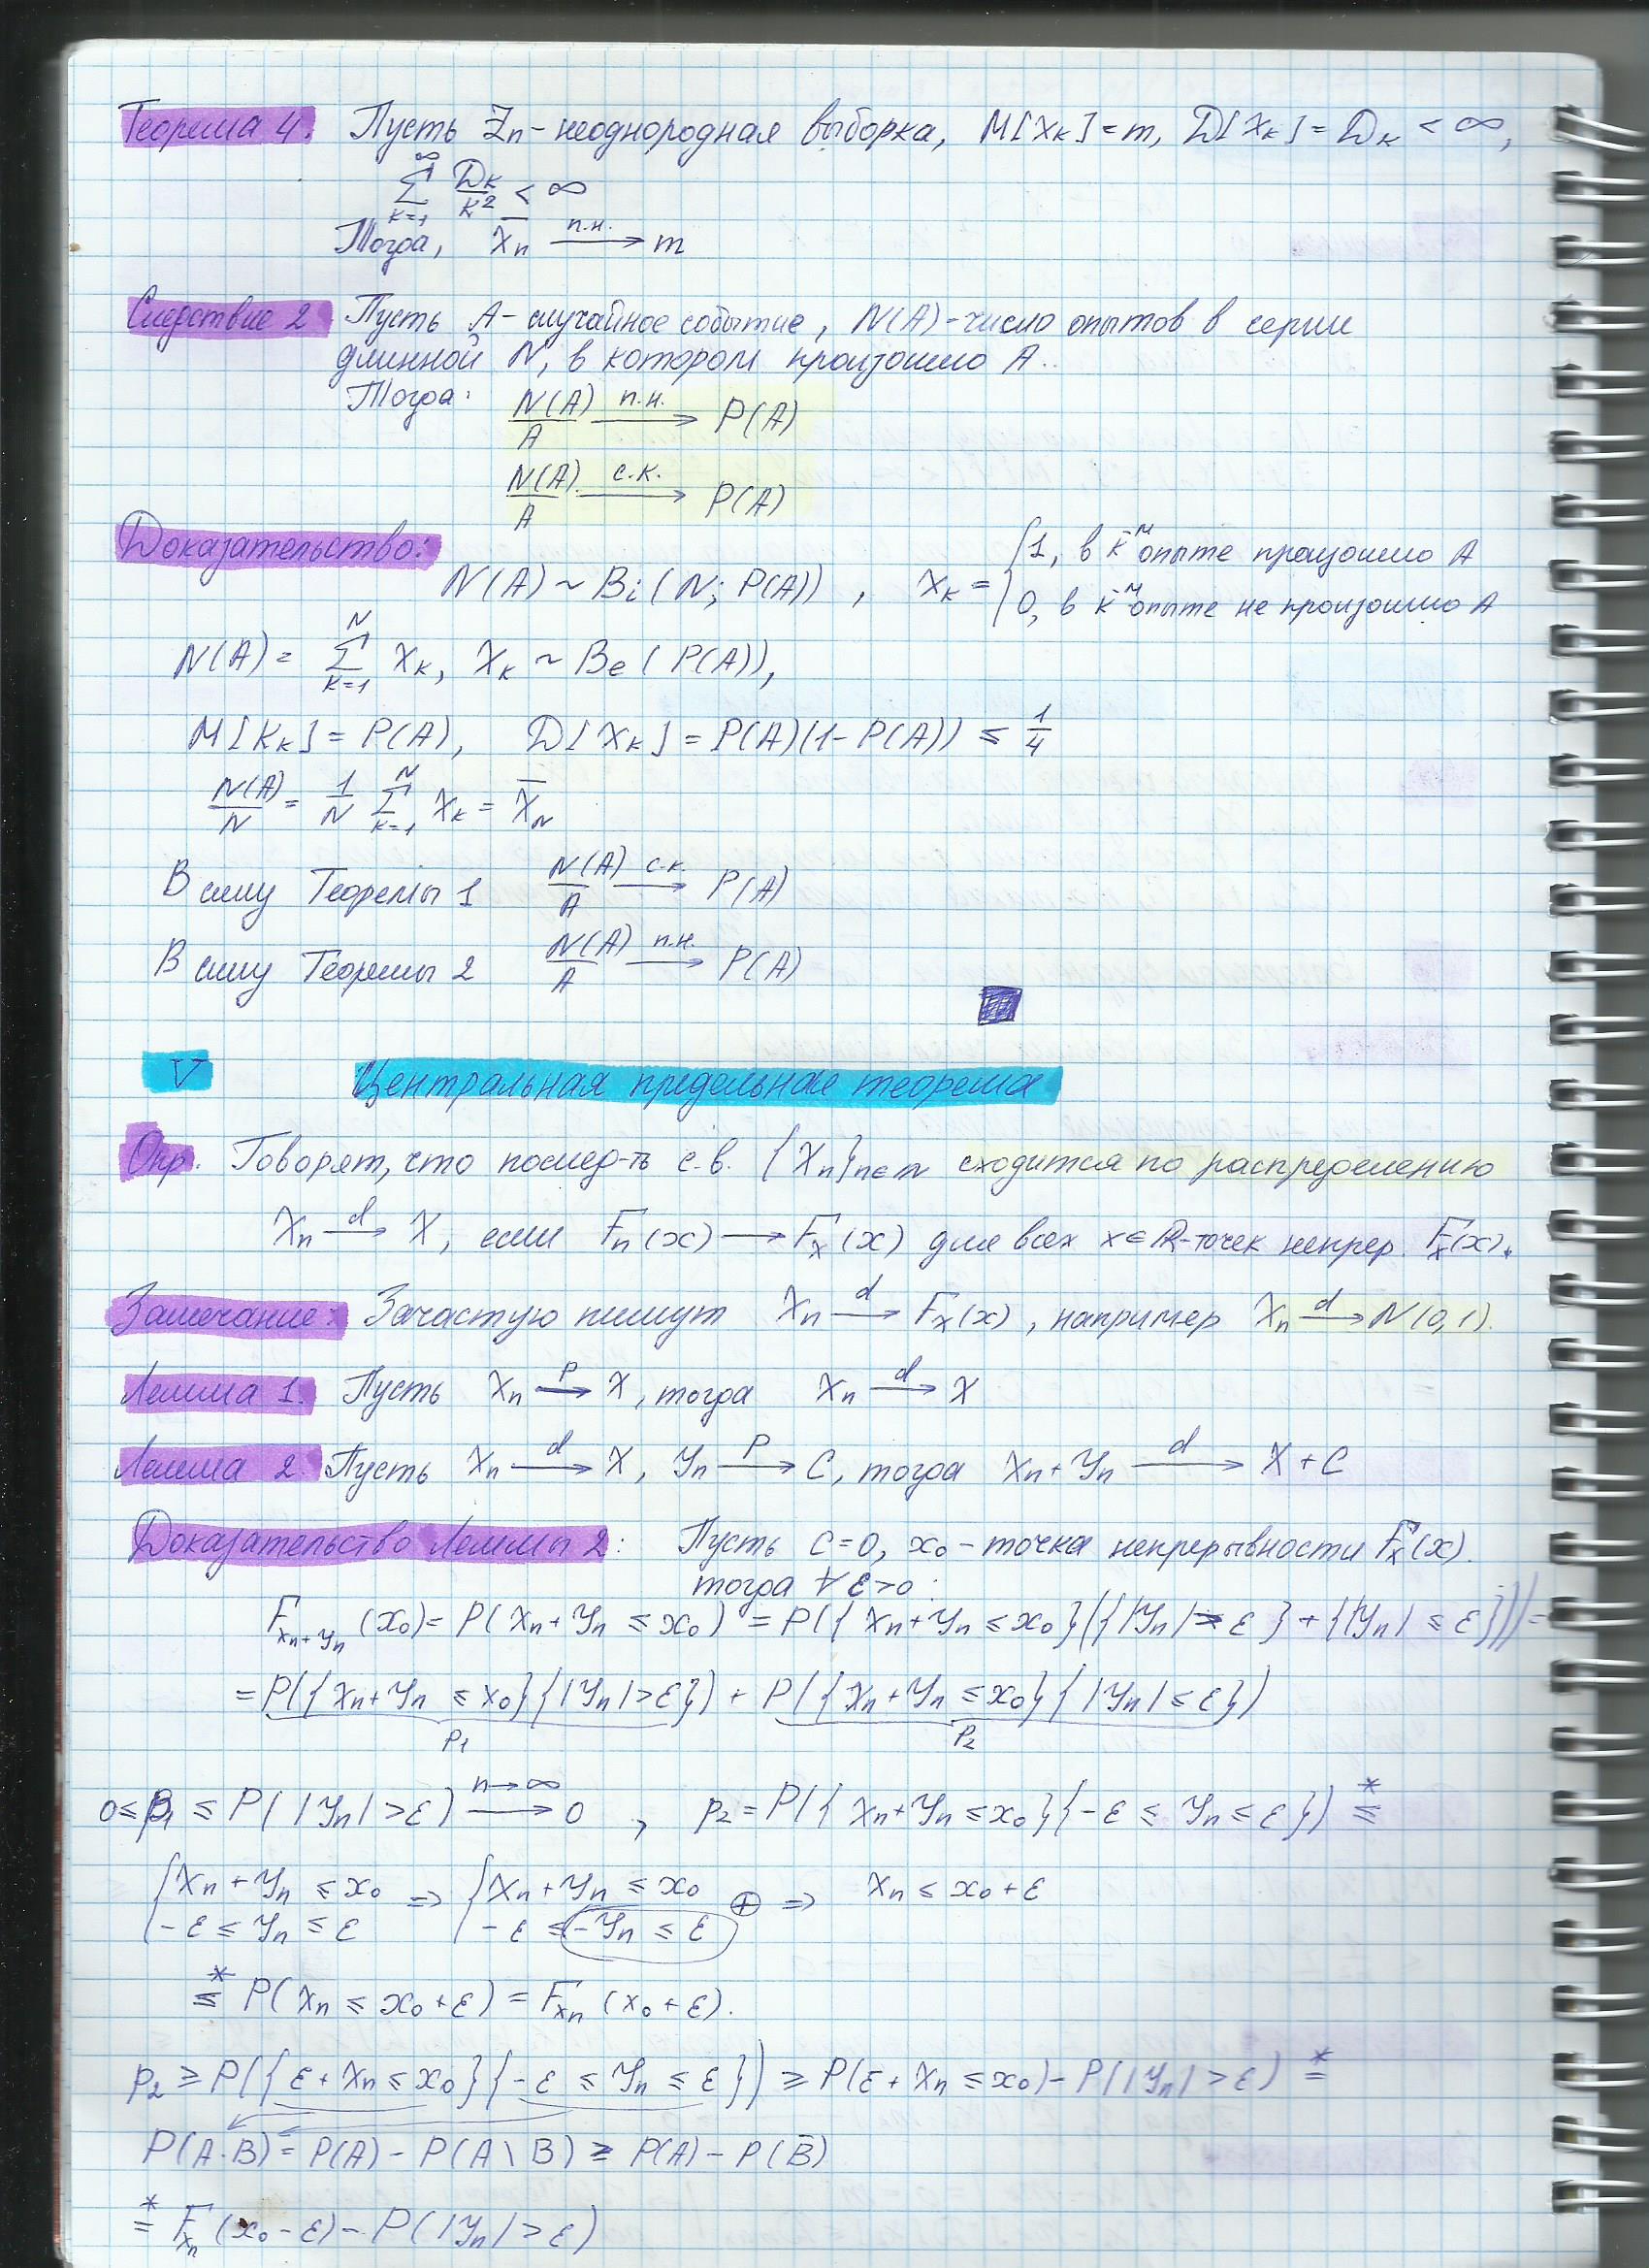 Теорема 4. Пусть Zn - неоднородная выборка, M[Xk] = m, D[Xk] = Dk < ∞,
∞∑k=1 Dk/k² < ∞
Тогда, X̄n —п.н.→ m
Следствие 2 Пусть A - случайное событие, N(A) - число опытов в серии
длинной N, в котором произошло A..
Тогда: N(A)/A —п.н.→ P(A)
N(A)/A —с.к.→ P(A)
Доказательство:
N(A) ~ Bi(N; P(A)), Xk = { 1, в k-м опыте произошло A
0, в k-м опыте не произошло A
N(A) = N∑k=1 Xk, Xk ~ Be(P(A)),
M[Kk] = P(A), D[Xk] = P(A)(1-P(A)) ≤ 1/4
N(A)/N = 1/N N∑k=1 Xk = X̄N
В силу Теоремы 1 N(A)/A —с.к.→ P(A)
В силу Теоремы 2 N(A)/A —п.н.→ P(A)
V Центральная предельная теорема
Опр. Говорят, что послед-ть с.в. {Xn}n∈N сходится по распределению
Xn —d→ X, если Fn(x) → Fx(x) для всех x∈R-точек непрер. Fx(x).
Замечание: Зачастую пишут Xn —d→ Fx(x), например Xn —d→ N(0,1).
Лемма 1. Пусть Xn —p→ X, тогда Xn —d→ X
Лемма 2. Пусть Xn —d→ X, Yn —p→ C, тогда Xn+Yn —d→ X+C
Доказательство Леммы 2: Пусть C=0, x0 - точка непрерывности Fx(x).
тогда ∀ε>0:
FXn+Yn(x0) = P(Xn+Yn ≤ x0) = P({Xn+Yn ≤ x0}({|Yn| > ε} + {|Yn| ≤ ε})) =
= P({Xn+Yn ≤ x0}{|Yn|>ε}) + P({Xn+Yn ≤ x0}{|Yn| ≤ ε})
p1 p2
0 ≤ p1 ≤ P(|Yn|>ε) —n→∞→ 0, p2 = P({Xn+Yn ≤ x0}{-ε ≤ Yn ≤ ε}) ≤*
{ Xn+Yn ≤ x0 ⇒ { Xn+Yn ≤ x0 ⊕ ⇒ Xn ≤ x0+ε
-ε ≤ Yn ≤ ε -ε ≤ -Yn ≤ ε
≤* P(Xn ≤ x0+ε) = FXn(x0+ε).
p2 ≥ P({ε+Xn ≤ x0}{-ε ≤ Yn ≤ ε}) ≥ P(ε+Xn ≤ x0) - P(|Yn|>ε) =*
P(A·B) = P(A) - P(A\B) ≥ P(A) - P(B̄)
=* FXn(x0-ε) - P(|Yn|>ε)